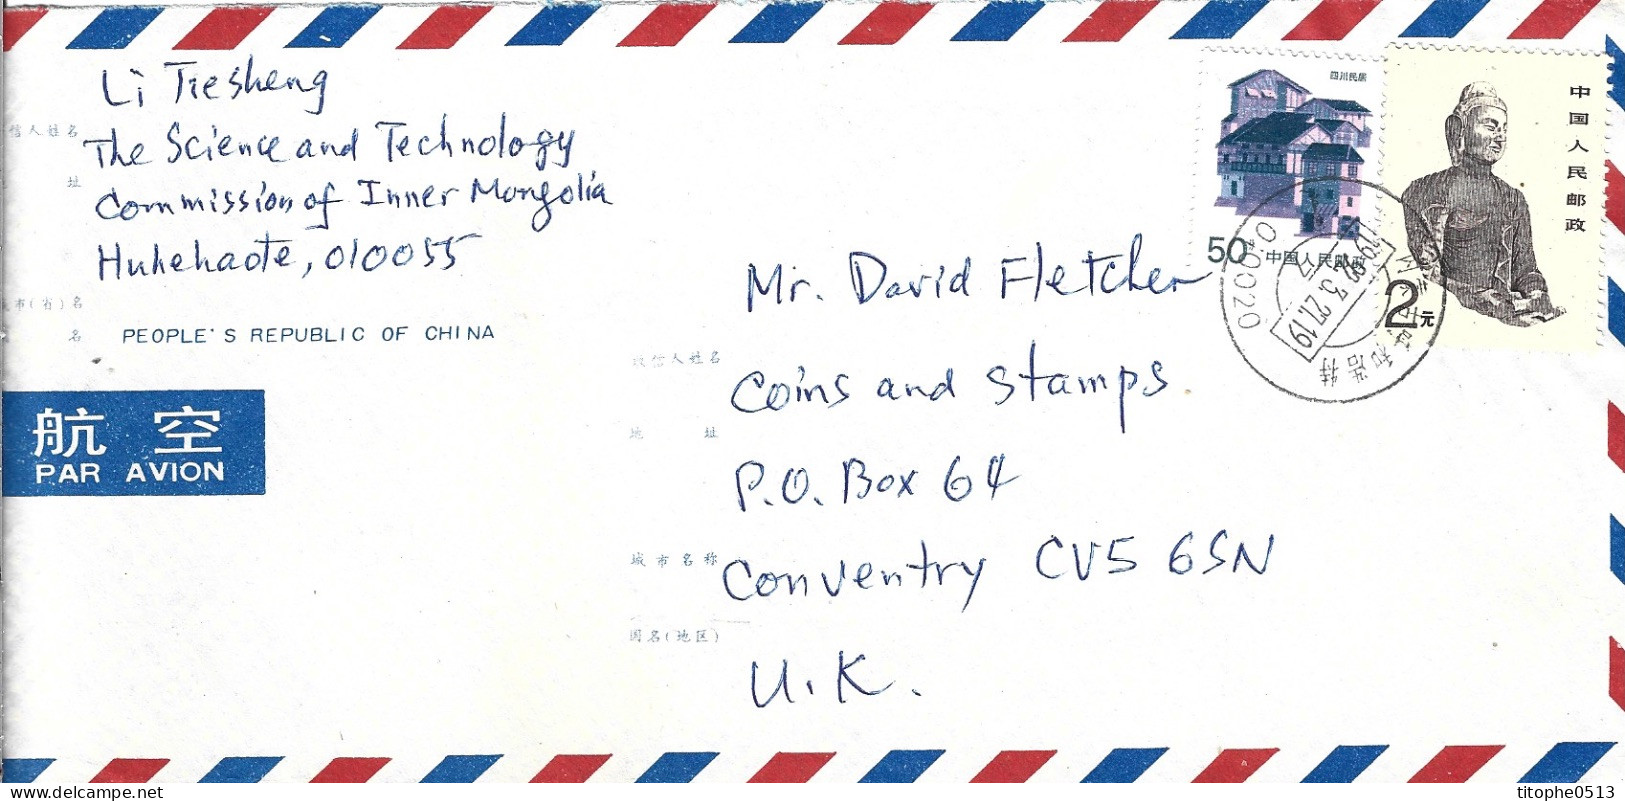 Li Tiesheng
信人姓名
The Science and Technology
址
Commission of Inner Mongolia
Huhehaote, 010055
市(省)名
名
PEOPLE'S REPUBLIC OF CHINA
航空
PAR AVION
四川民居
50
中国人民邮政
中国人民邮政
2元
010020
呼和浩特
Mr. David Fletcher
收信人姓名
Coins and Stamps
地 址
P.O. Box 64
城市名称
Coventry CV5 6SN
国名(地区)
U.K.
titophe0513